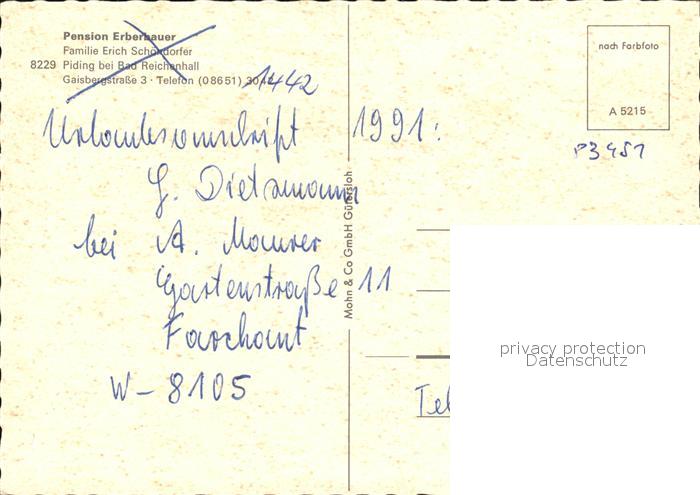 Pension Erberbauer
Familie Erich Schöndorfer
8229 Piding bei Bad Reichenhall
Gaisbergstraße 3 · Telefon (08651)
1442
nach Farbfoto
A 5215
P3451
Urlaubsanschrift 1991:
G. Dietzmann
bei A. Maurer
Gartenstraße 11
Farchant
W-8105
Mohn & Co GmbH Gütersloh
Tel
privacy protection
Datenschutz